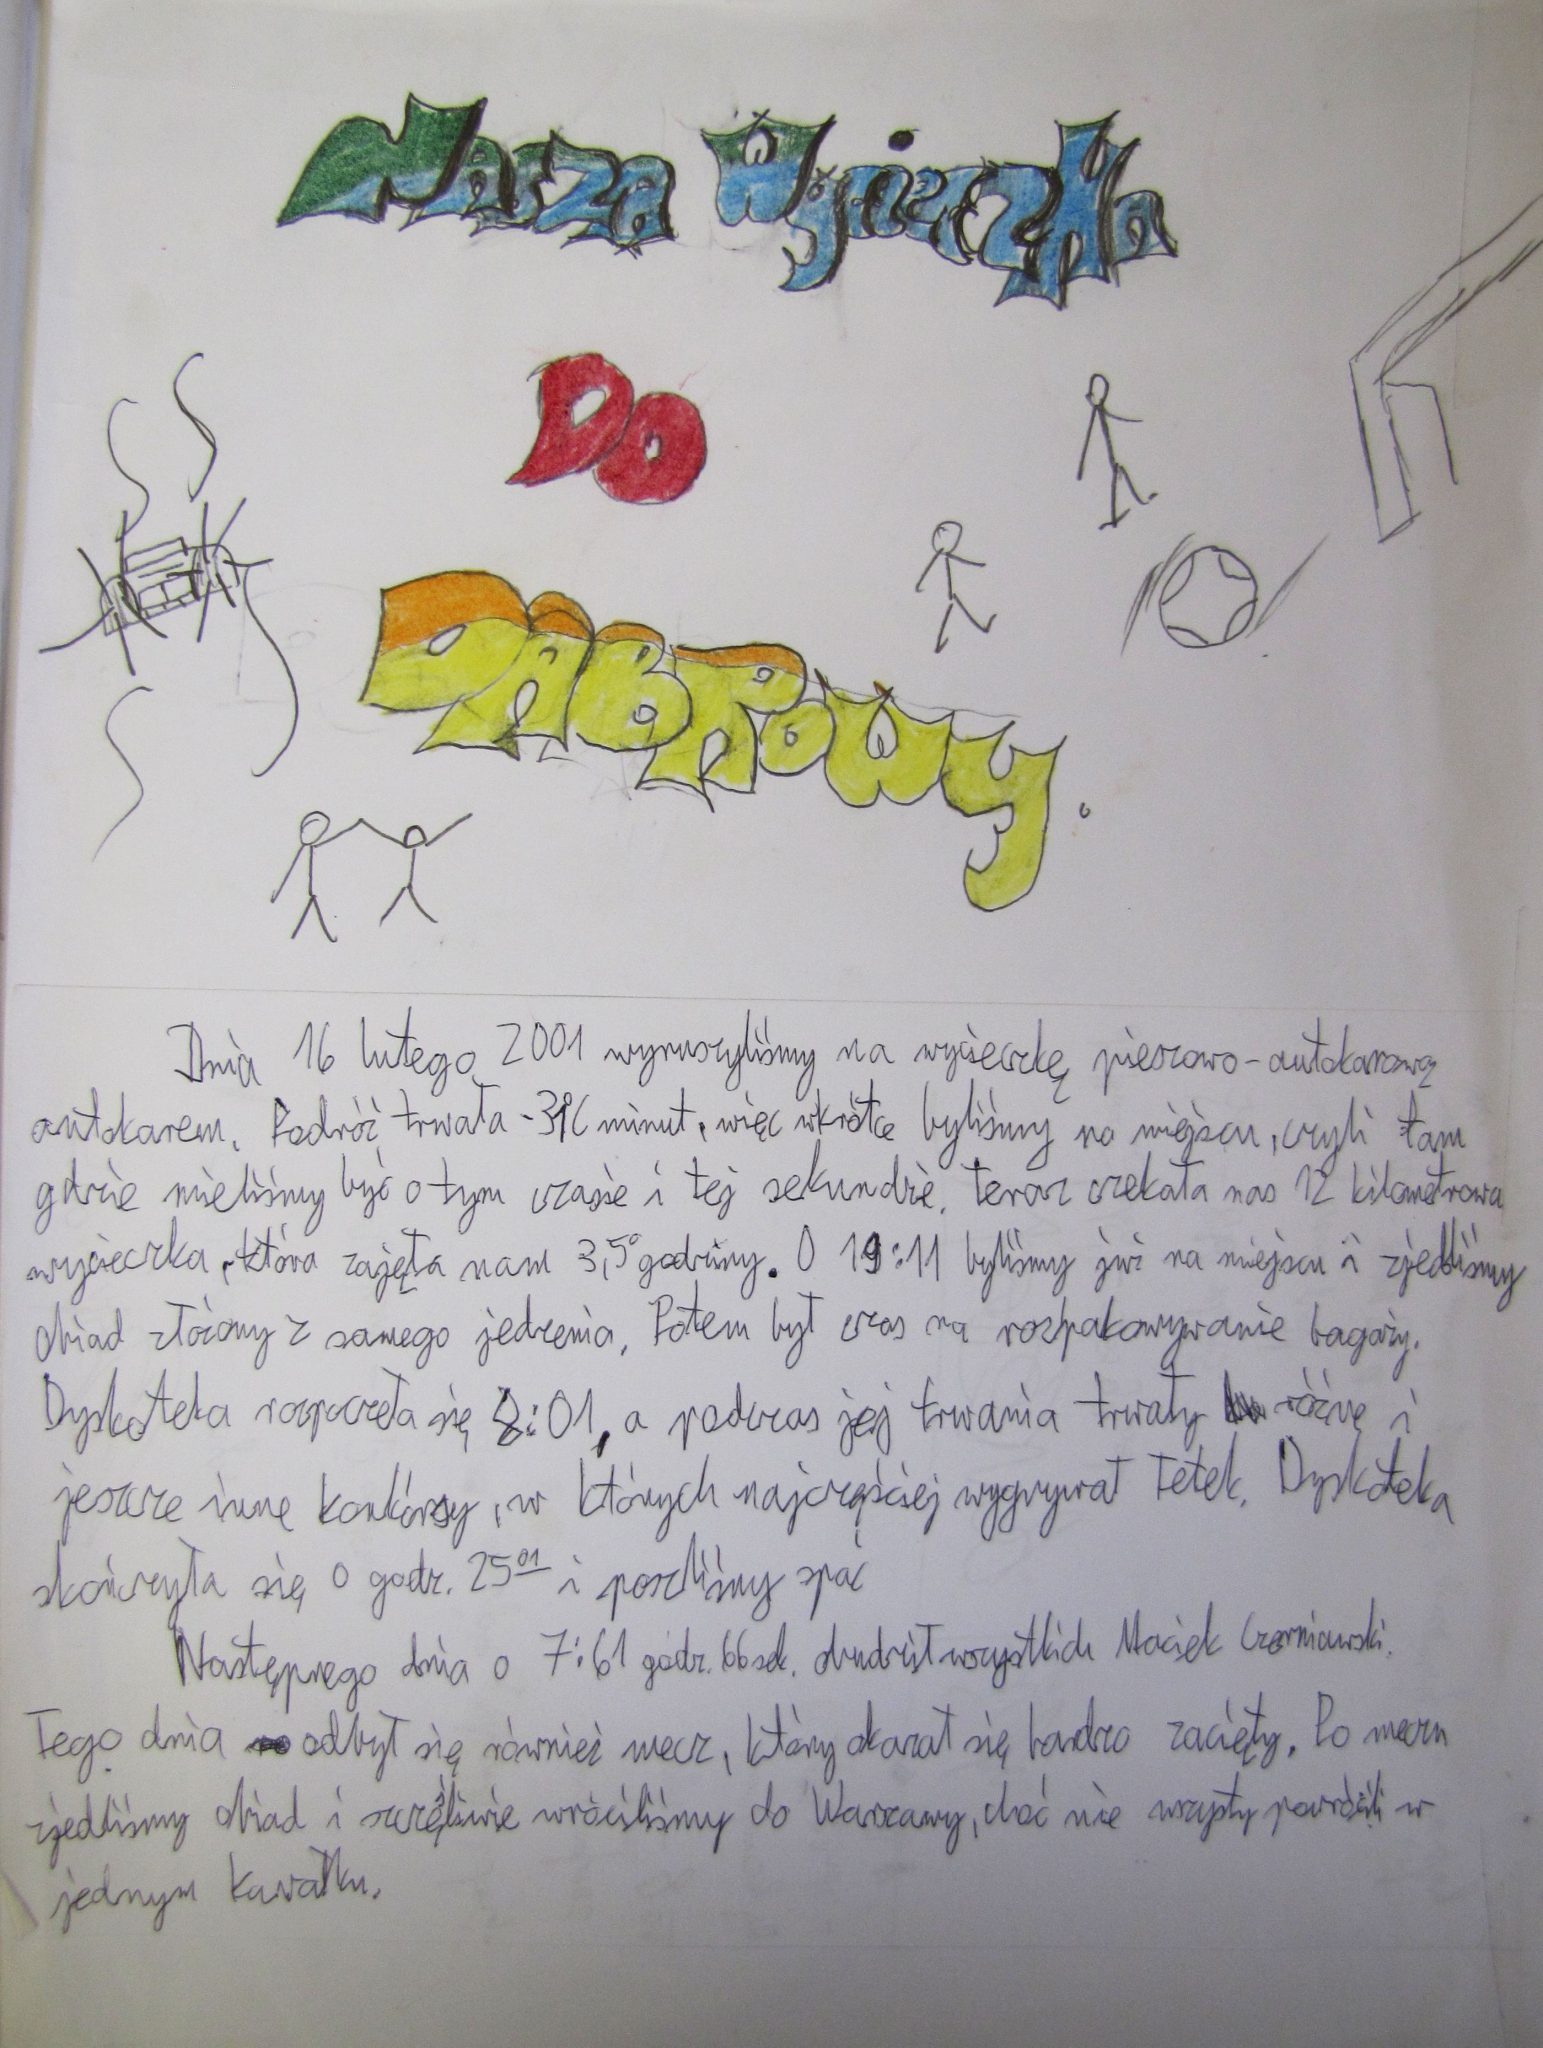 Nasza Wycieczka
Do
DĄBROWY.
Dnia 16 lutego 2001 wyruszyliśmy na wycieczkę pieszowo-autokarową
autokarem. Podróż trwała minut, więc wkrótce byliśmy na miejscu, czyli tam
gdzie mieliśmy być o tym czasie i tej sekundzie. teraz czekała nas 12 kilometrowa
wycieczka, która zajęła nam 3,5° godziny. O 19:11 byliśmy już na miejscu i zjedliśmy
obiad złożony z samego jedzenia. Potem był czas na rozpakowywanie bagaży.
Dyskoteka rozpoczeła się 8:01, a podczas jej trwania trwały różne i
jeszcze inne konkórsy, w których najczęściej wygrywał Tetek. Dyskoteka
skończyła się o godz. 25⁰¹ i poszliśmy spać
Następnego dnia o 7:61 godz. 66 sek. obudził wszystkich Maciek Czerniawski.
Tego dnia odbył się również mecz, który okazał się bardzo zacięty. Po meczu
zjedliśmy obiad i szczęśliwie wróciliśmy do Warszawy, choć nie wszyscy powrócili w
jednym kawałku.